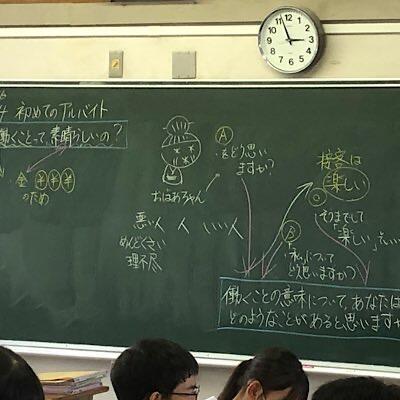 4 初めてのアルバイト
働くことって、素晴らしいの?
・金 ¥ ¥ ¥
のため
おばあちゃん
A
をどう思い
ますか?
接客は
楽しい
悪い人 人 いい人
めんどくさい
理不尽
B
「私」について
どう思いますか?
そうまでして
「楽しい」
働くことの意味について、あなたは
どのようなことがあると、思いますか